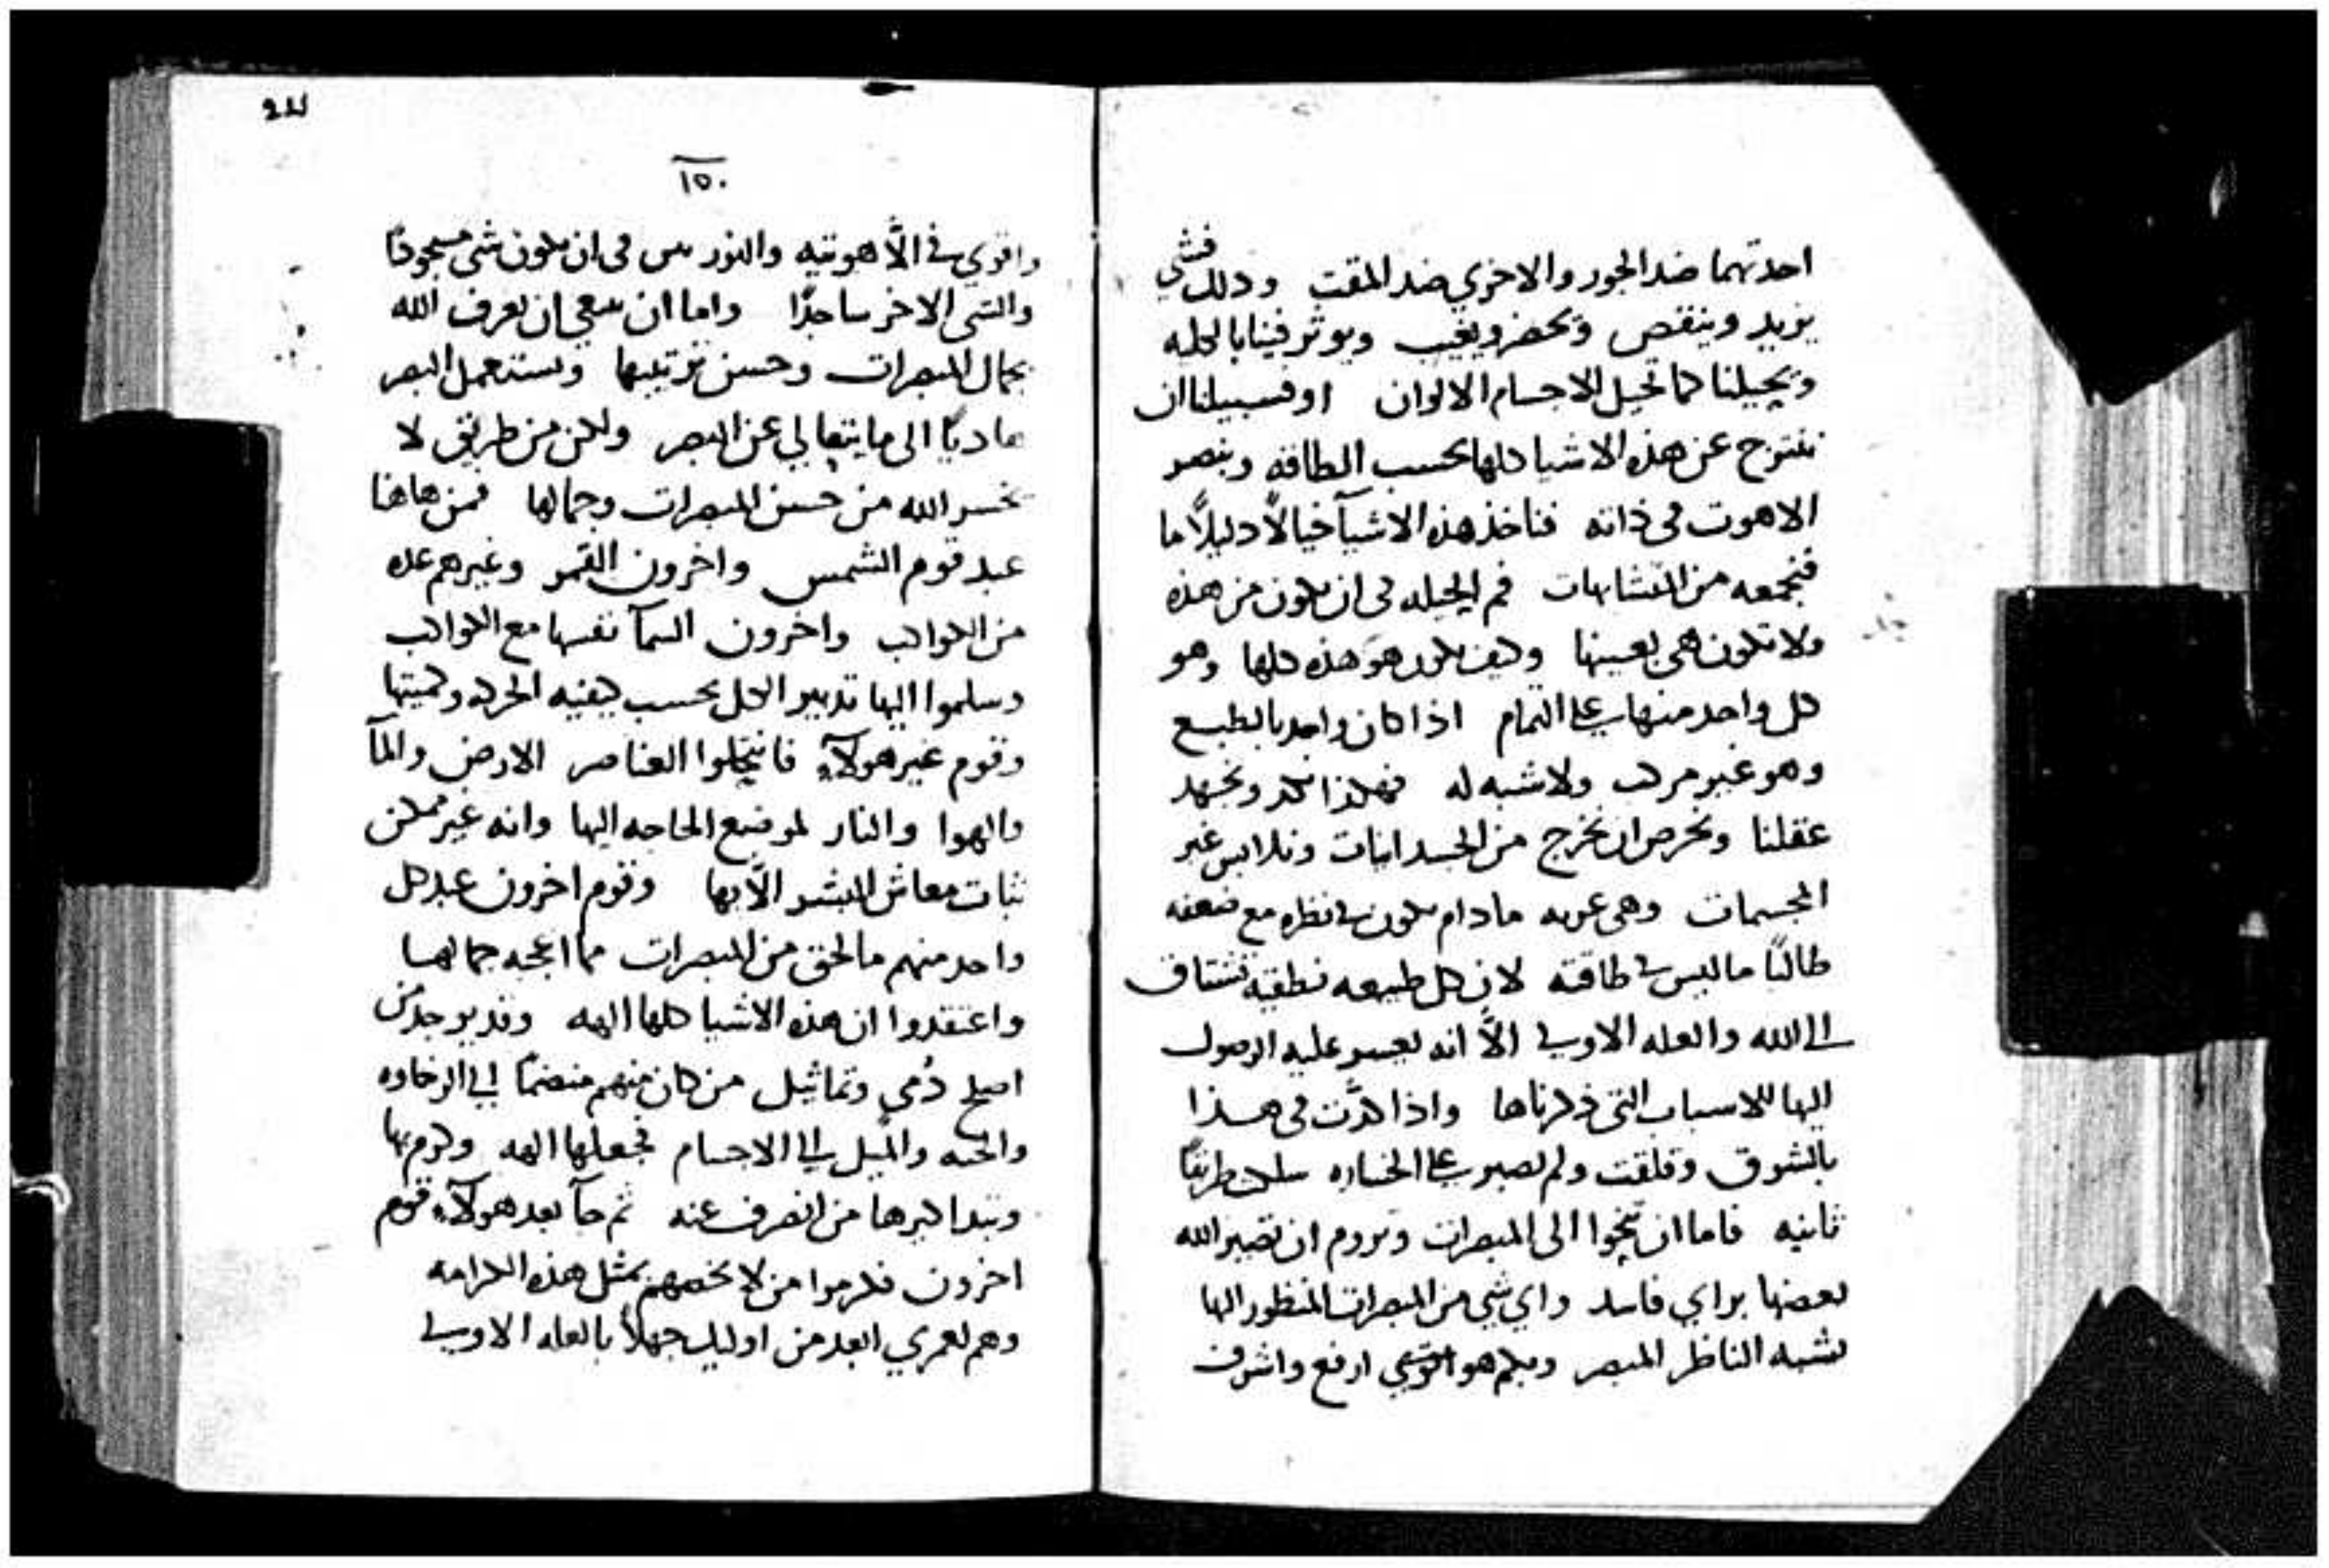 احدتهما ضد الجور والاخري ضد المقت وذلك فشي
يزيد وينقص وتحضر ويغيب ويوثر فينا بالجله
وتحيلنا كما تحيل الاجسام الالوان او فسبيلنا ان
ننتزح عن هذه الاشيا كلها بحسب الطاقه وينصر
الاهوت فى ذاته فناخذ هذه الاشيآ خيالاً دليلاً ما
فنجمعه من المتشابهات فم الحيله فى ان يكون من هذه
ولا تكون هى بعينها وكيف يكون هو هذه كلها وهو
كل واحد منها على التمام اذا كان واحد بالطبع
وهو غير مركب ولا شبه له فهكذا نكد ونجهد
عقلنا ونحرص ان نخرج من الجسدانيات ونلابس غير
المجسمات وهى عريه ما دام يكون فى نظره مع ضعفه
طالباً ما ليس فى طاقته لان كل طبيعه نطقيه تشتاق
الى الله والعله الاولى الاَّ انه يعسر عليه الوصول
اليها للاسباب التى ذكرناها واذا كدَّت فى هذا
بالشوق وقلقت ولم تصبر على الخساره سلكت طريقاً
ثانيه فاما ان تنحوا الى المبصرات وتروم ان تصير الله
بعضها براي فاسد واي شي من المبصرات المنظور اليها
يشبه الناظر المبصر وبكم هو ارفع واشرف
١٥٠
واقوي فى الاَّهوتيه والنور حتى فى ان يكون شى مسجودًا
والشى الاخر ساجدًا واما ان ينبغى ان يعرف الله
بجمال المبصرات وحسن ترتيبها ويستعمل البصر
هاديًا الى ما يتعالي عن البصر ولكن من طريق لا
يخسر الله من حسن المبصرات وجمالها فمن هاهنا
عبد قوم الشمس واخرون القمر وغيرهم عده
من الكواكب واخرون السمآ نفسها مع الكواكب
وسلموا اليها تدبير الكل بحسب كيفيه الحركه وكميتها
وقوم غير هولآء فانتحلوا العناصر الارض والمآ
والهوا والنار لموضع الحاجه اليها وانه غير ممكن
ثبات معاش البشر الاَّ بها وقوم اخرون عبد كل
واحد منهم ما لحق من المبصرات مما اعجبه جمالها
واعتقدوا ان هذه الاشيا كلها الهه وقد يوجد من
اصلح دُمي وتماثيل من كان منهم منضمًا الى الرخاوه
والمحبه والميل الى الاجسام فجعلها الهه وكرم بها
ويتدا كبرها من انصرف عنه ثم جآ بعد هولآء قوم
اخرون فكرموا من لا يخصهم بمثل هذه الكرامه
وهم لعمري ابعد من اوليك جهلاً بالعله الاولى